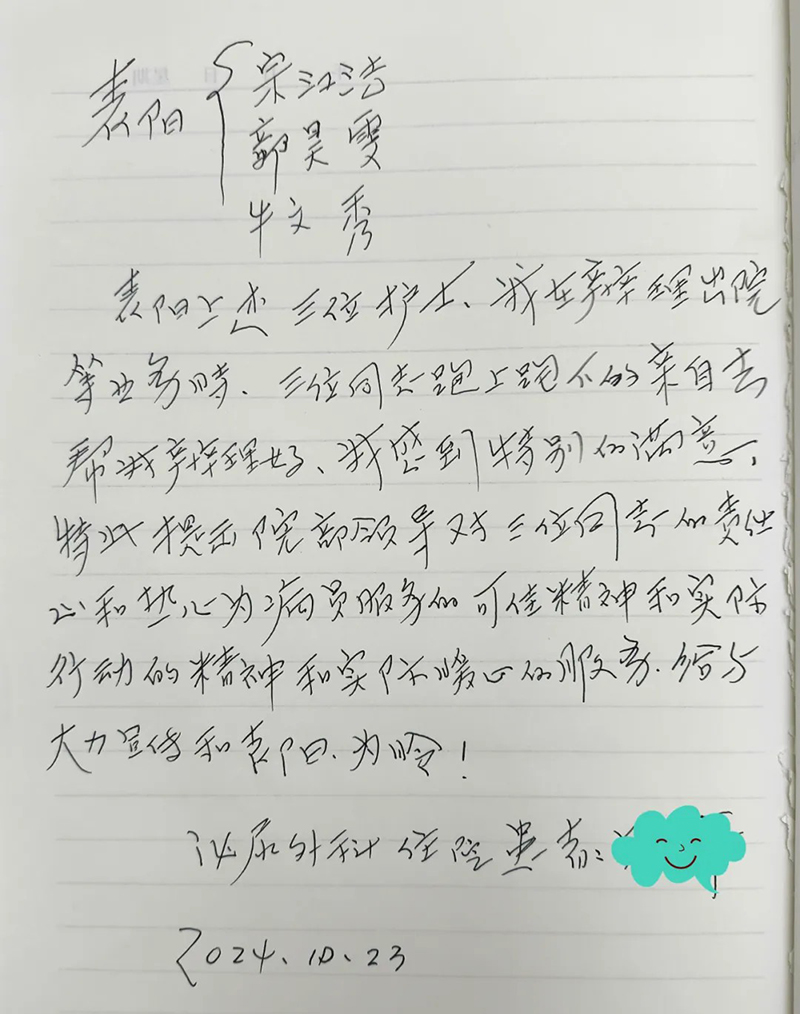 表阳
宗江洁
郭昊雯
牛文秀
表阳上述三位护士、我在办理出院
等业务时、三位同志跑上跑下的亲自去
帮我办理好、我感到特别的满意、
特此提出院部领导对三位同志的责任
心和热心为病员服务的可佳精神和实际
行动的精神和实际暖心的服务.给与
大力宣传和表阳.为盼!
泌尿外科住院患者:
2024.10.23